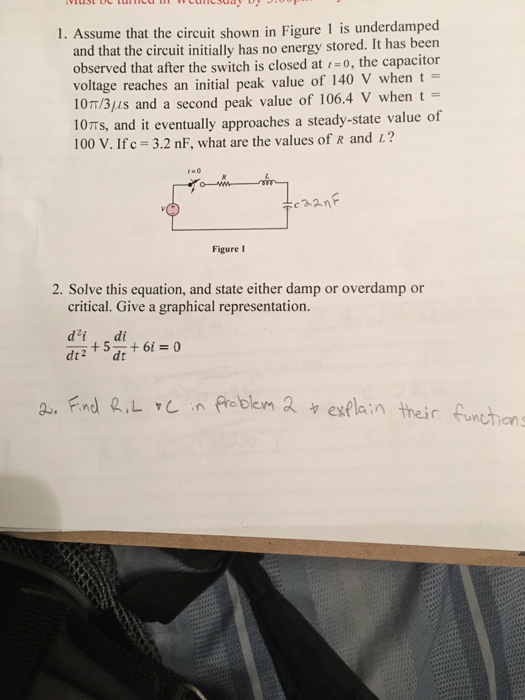 1. Assume that the circuit shown in Figure 1 is underdamped
and that the circuit initially has no energy stored. It has been
observed that after the switch is closed at t=0, the capacitor
voltage reaches an initial peak value of 140 V when t =
10π/3μs and a second peak value of 106.4 V when t =
10πs, and it eventually approaches a steady-state value of
100 V. If c = 3.2 nF, what are the values of R and L?
t=0
R
L
v
c 3.2nF
Figure 1
2. Solve this equation, and state either damp or overdamp or
critical. Give a graphical representation.
d²i/dt² + 5 di/dt + 6i = 0
2. Find R, L & C in Problem 2 & explain their functions